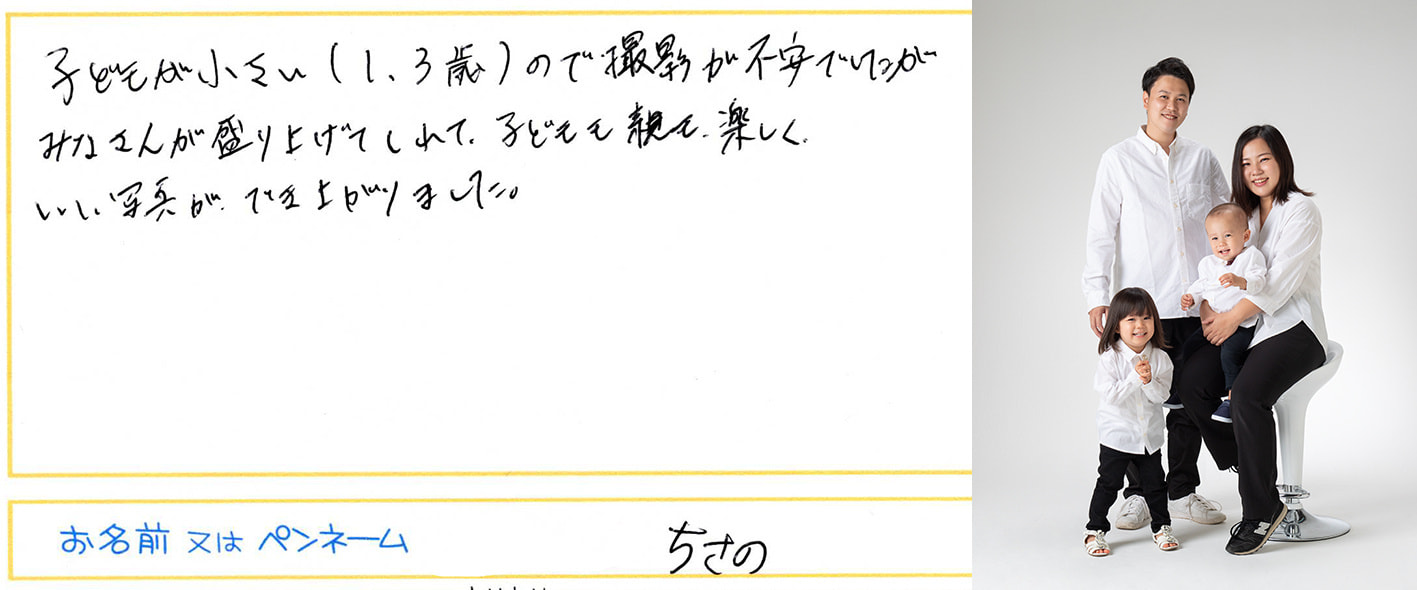 子どもが小さい(1、3歳)ので撮影が不安でしたが
みなさんが盛り上げてくれて、子どもも親も、楽しく、
いい写真が、でき上がりました。
お名前 又は ペンネーム
ちさの